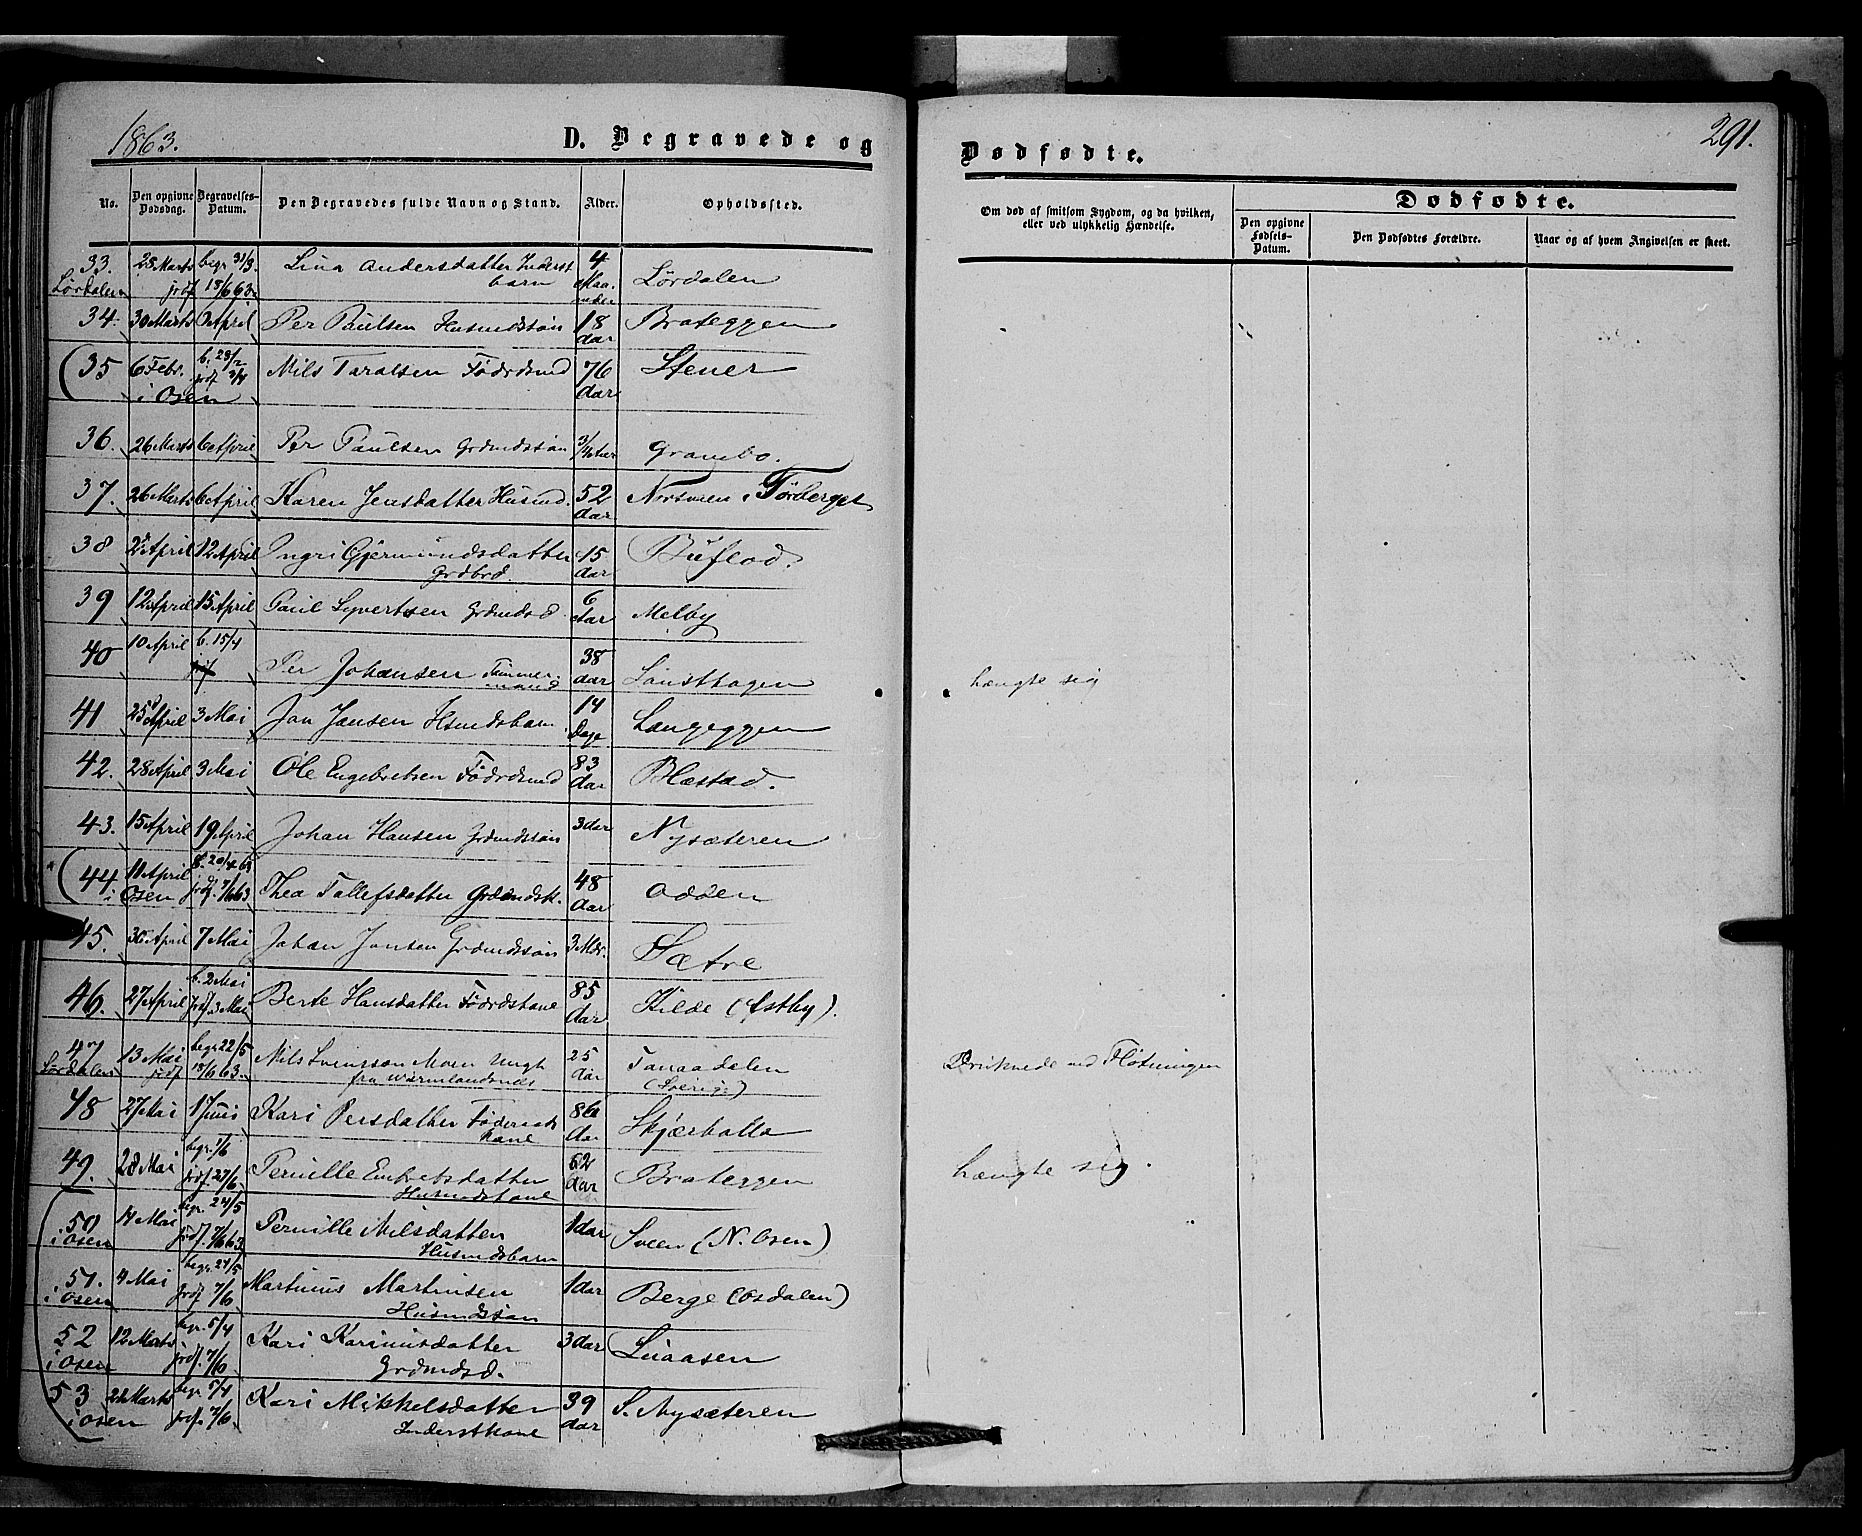 1863.
D. Begravede og
Dødfødte.
291.
No.
Den opgivne Dødsdag.
Begravelses-Datum.
Den Begravedes fulde Navn og Stand.
Alder.
Opholdssted.
Om død af smitsom Sygdom, og da hvilken,
eller ved ulykkelig Hændelse.
Dødfødte.
Den opgivne Fødsels-Datum.
Den Dødfødtes Forældre.
Naar og af hvem Angivelsen er skeet.
33. 28 Marts begr 31/3. Lina Andersdatter Inderst 4
Lørdalen jrdf 18/6 63. barn Maaneder Lørdalen
34. 30 Marts 6 April Per Paulsen Husmdssøn 18 Aar Brateggen
(35 6 Febr. b. 28/2 Nils Taralsen Födrdsmd 76 Stener
i Osen jrdf Aar
36. 26 Marts 6 April Per Paulsen Grdmdssøn 3/4 Aar Grambo.
37. 26 Marts 6 April Karen Jensdatter Husmd. 52 Aar Nortmoen i Tørberget
38 2 April 12 April Ingri Gjermundsdatter 15 Aar Buflod.
Grdbrd.
39 12 April 15 April Paul Syvertsen Grdmds 6 Aar Melby
40 10 April b. 15/4 Per Johansen Tømmermand 38 Aar hængte sig
jrdf
41 25 April 3 Mai Jon Jansen Hsmdsbarn 14 Dage Langeggen
42. 28 April 3 Mai Ole Engebretsen Födrdsmd 83 Aar Blæstad.
43. 15 April 19 April Johan Hansen Grdmdssøn 3 Aar Nysæteren
(44. 11 April b. 20/4 63 Thea Tollefsdatter Grdmdsk. 48 Aar Odden
i Osen jrdf. 7/6 63
45. 30 April 7 Mai Johan Jonsen Grdmdssøn 3 Mdr. Sætre
46. 27 April b. 2 Mai Berte Hansdatter Födrdskone 85 Aar Kilde (Østby).
jrdf. 3 Mai
47 13 Mai begr 22/5 Nils Svensson Moen Ungk 25 Aar Tanaadalen Druknede ved Fløtningen
Lørdalen jrdf 18/6 63. fra Wärmlandsnæs (Sverige)
48 27 Mai 1 Juni Kari Persdatter Föderaads 86 Aar Skjærholla
kone
49. 28 Mai begr. 1/6 Pernille Embretsdatter 62 Aar Brateggen hængte sig.
jrdf 27/6. Husmdskone
50 14 Mai begr. 24/5 Pernille Nilsdatter 1 Aar Sveen (N. Osen)
i Osen jrdf. 7/6 63. Husmdsbarn
51. 4 Mai begr. 24/5 Martinus Martinsen 1 Aar Berge (Osdalen)
i Osen jrdf 7/6 Husmdssøn
52 12 Marts begr. 5/4 Kari Karinusdatter 3 Aar Liaasen
i Osen jrdf. 7/6. Grdmdsd.
53 Marts begr 5/4 Kari Mikkelsdatter 39 Aar S. Nysæteren
i Osen jrdf. 7/6. Inderstkone